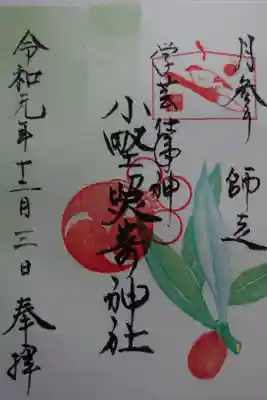 月参 師走
学芸
小野照崎神社
令和元年十二月三日 奉拝